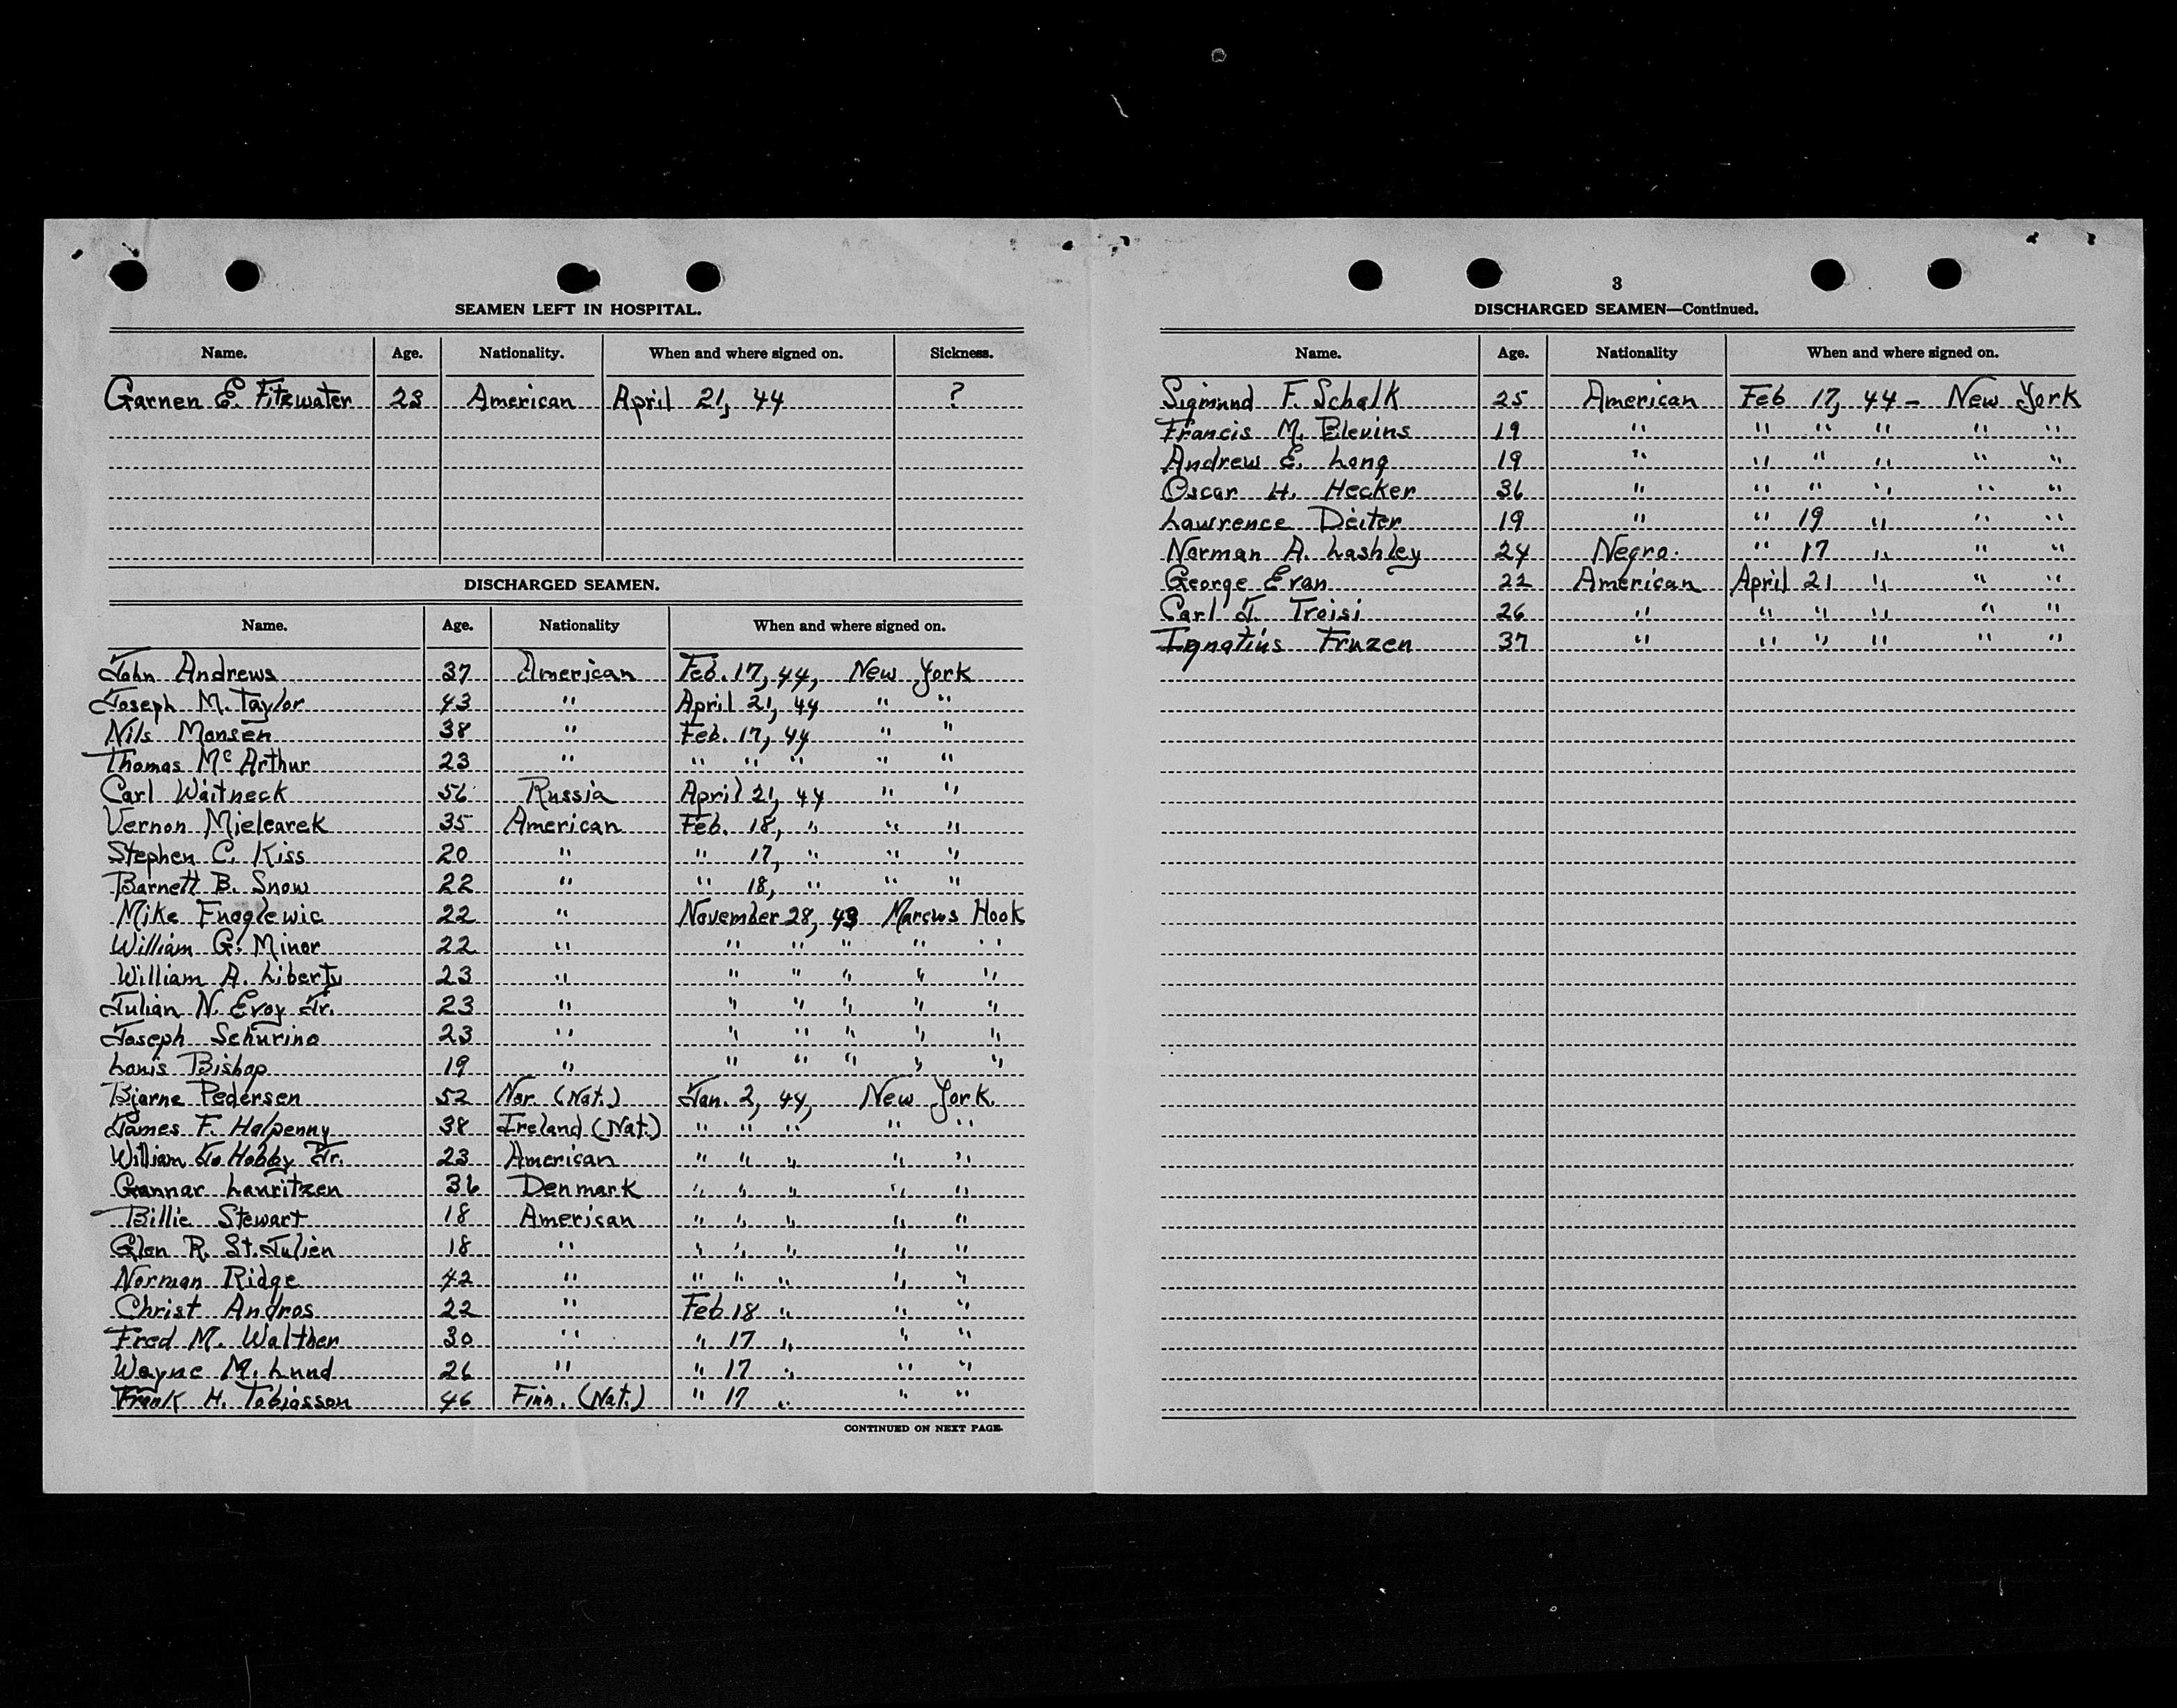 SEAMEN LEFT IN HOSPITAL.
Name. Age. Nationality. When and where signed on. Sickness.
Garnen E. Fitzwater 23 American April 21, 44 ?
DISCHARGED SEAMEN.
Name. Age. Nationality When and where signed on.
John Andrews 37 American Feb. 17, 44, New York
Joseph M. Taylor 43 " April 21, 44 " "
Nils Monsen 38 " Feb. 17, 44 " "
Thomas Mc Arthur 23 " " " " " "
Carl Waitneck 56 Russia April 21, 44 " "
Vernon Mielcarek 35 American Feb. 18, " " "
Stephen C. Kiss 20 " " 17, " " "
Barnett B. Snow 22 " " 18, " " "
Mike 22 " November 28, 43 Marcus Hook
William G. Minor 22 " " " " " "
William A. Liberty 23 " " " " " "
Julian N. Eroy Jr. 23 " " " " " "
Joseph Schurino 23 " " " " " "
Louis Bishop 19 " " " " " "
Bjarne Pedersen 52 Nor. (Nat.) Jan. 2, 44, New York.
James F. Halpenny 38 Ireland (Nat.) " " " " "
William Jo Hobby Jr. 23 American " " " " "
Gunnar Lauritzen 36 Denmark " " " " "
Billie Stewart 18 American " " " " "
Glen R. St. Julien 18 " " " " " "
Norman Ridge 42 " " " " " "
Christ Andros 22 " Feb 18 " " "
Fred M. Walther 30 " " 17 " " "
Wayne M. Lund 26 " " 17 " " "
Frank H. Tobiasson 46 Finn. (Nat.) " 17 " " "
CONTINUED ON NEXT PAGE.
3
DISCHARGED SEAMEN—Continued.
Name. Age. Nationality When and where signed on.
Sigmund F. Schalk 25 American Feb 17, 44 - New York
Francis M. Blevins 19 " " " " " "
Andrew E. Long 19 " " " " " "
Oscar H. Hecker 36 " " " " " "
Lawrence Deiter 19 " " 19 " " "
Norman A. Lashley 24 Negro. " 17 " " "
George Evan 22 American April 21 " " "
Carl J. Troisi 26 " " " " " "
Ignatius Fruzen 37 " " " " " "